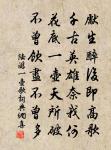 獻生醉後即高歌
千古英雄奈我何
花底一壺天所破
不曾飲盡不曾多
陸游一壺歌詞典網書